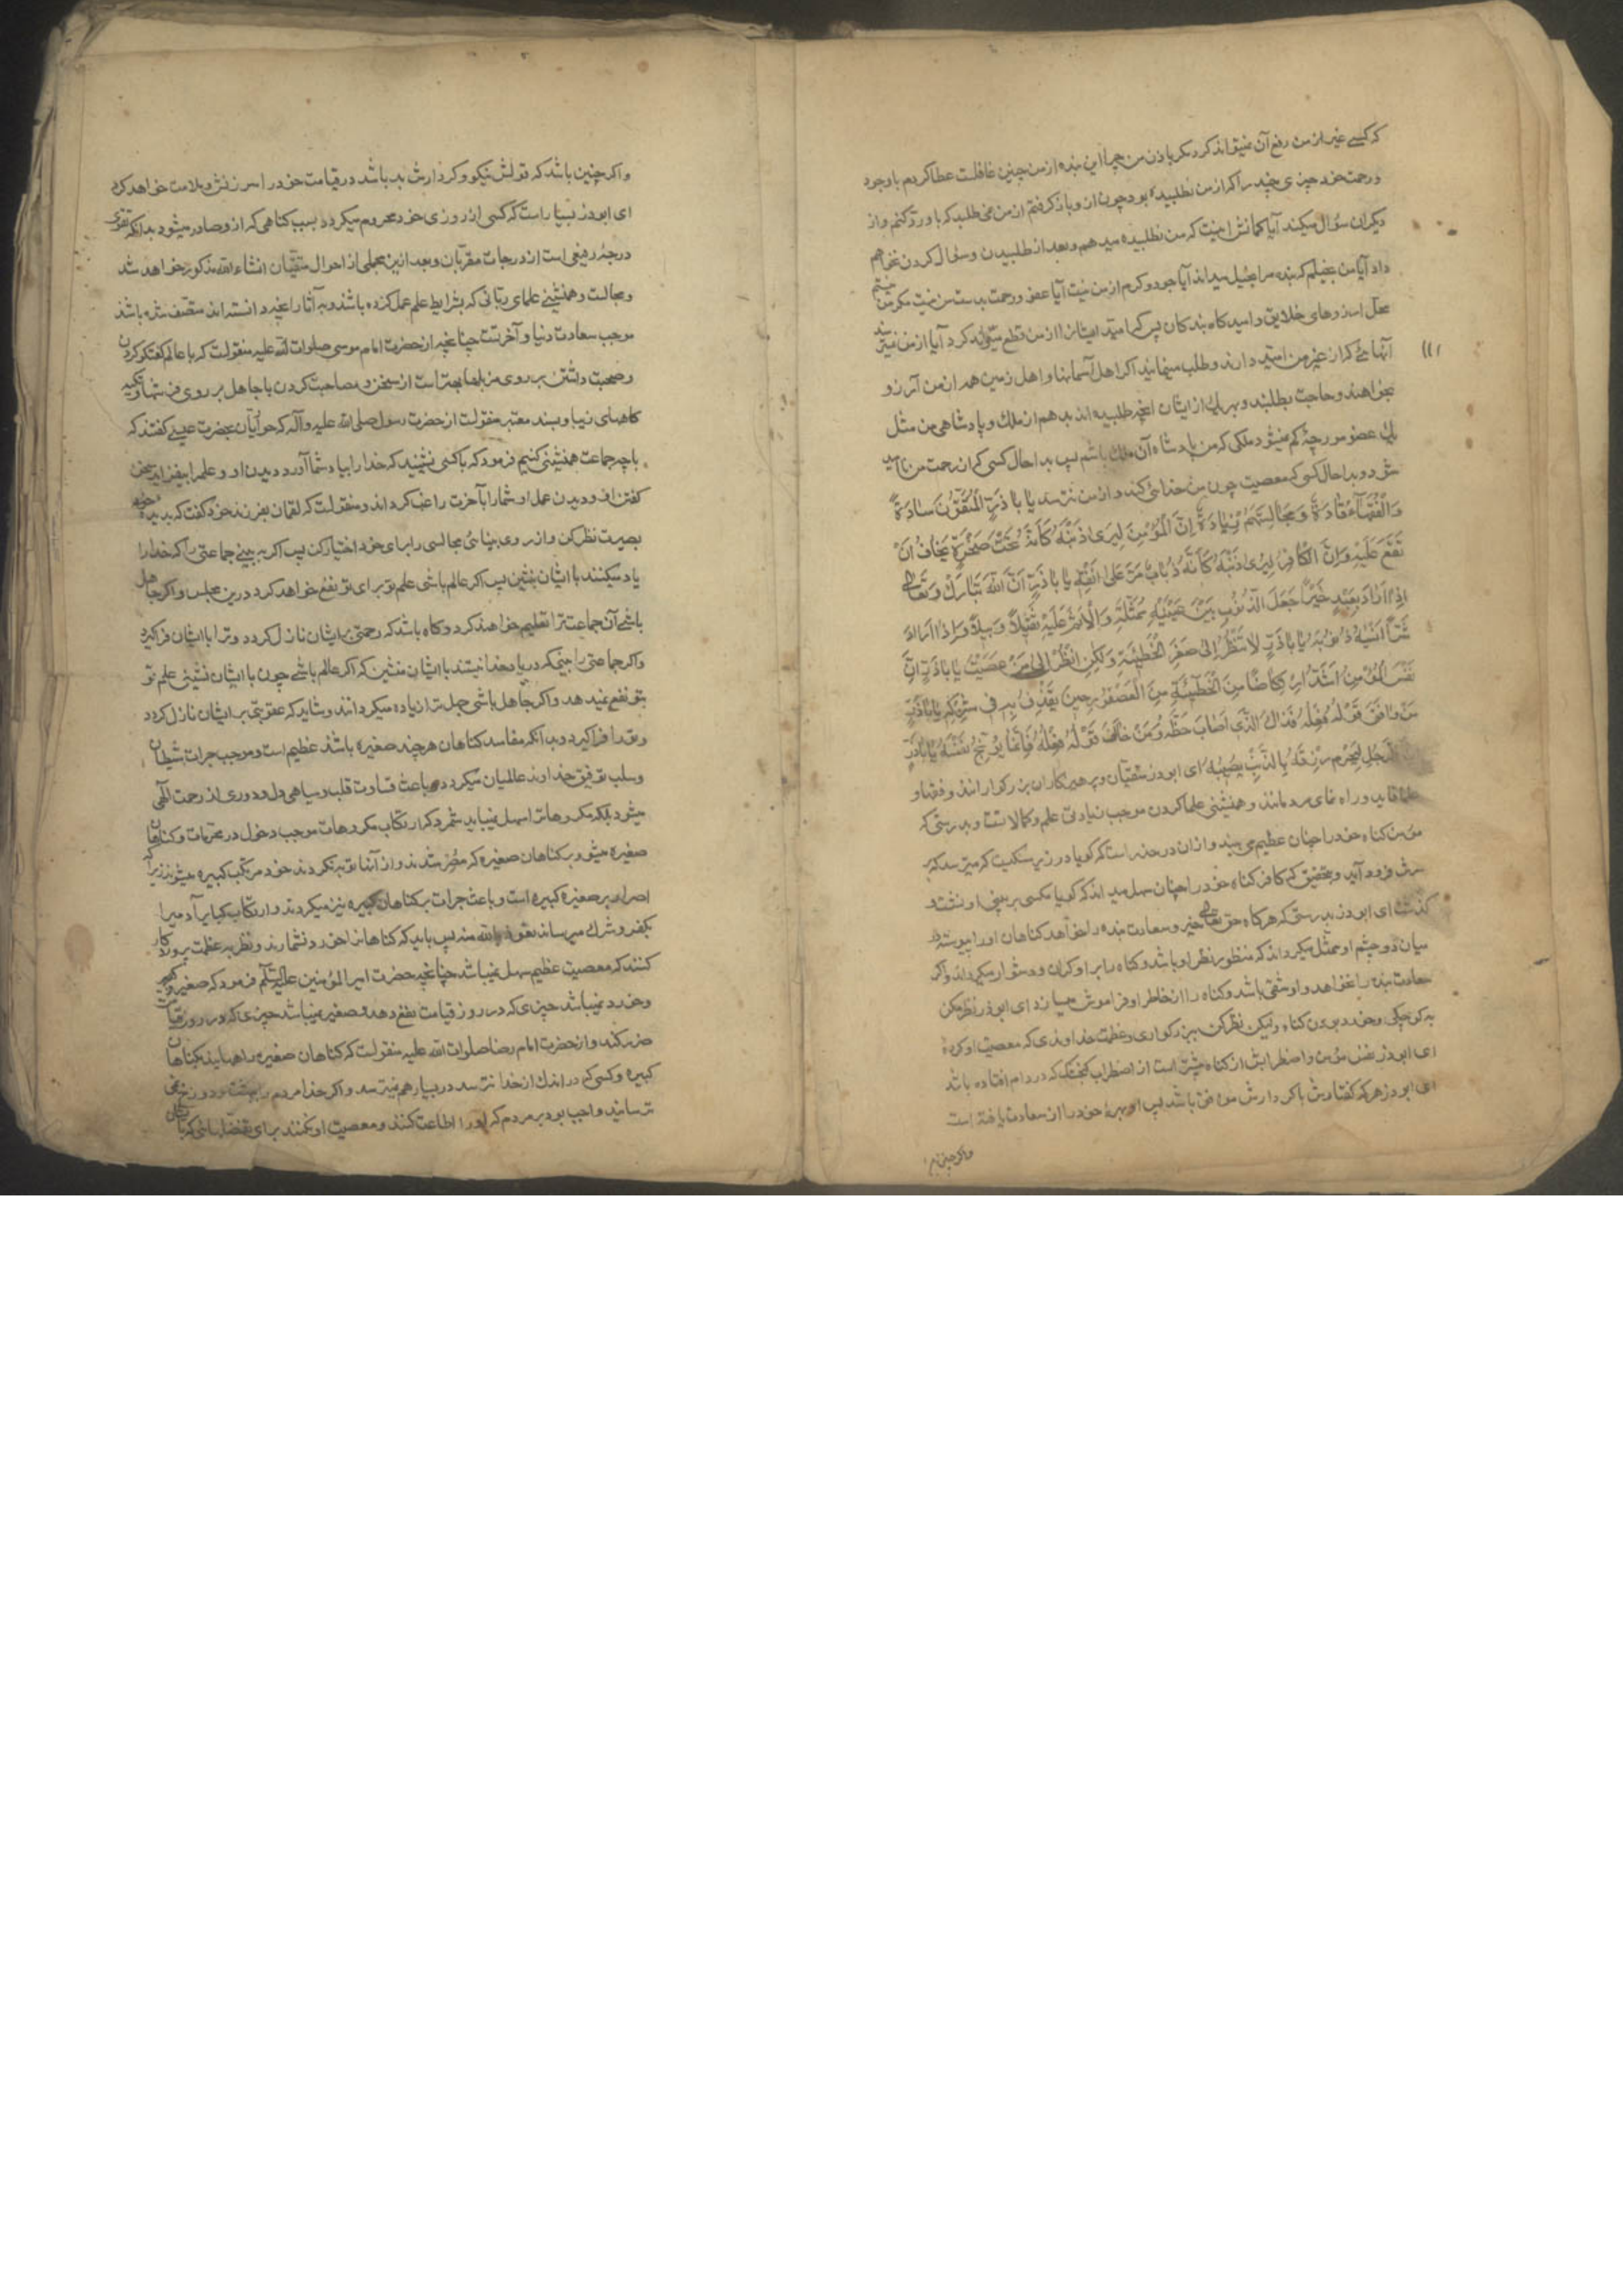 که کسی غیر از من رفع آن نمیتواند کرد مکر باذن من چرا این بنده از من چنین غافلست عطا کردم باو جود
و رحمت خود چیزی چند را که از من نطلبیده بود چون ازو باز کرفتم از من نمی طلبد که باو رد کنم و از
دیکران سؤال میکند آیا کمانش اینست که من نطلبیده میدهم و بعد از طلبیدن و سؤال کردن نخواهم
داد آیا من بخیلم که بنده مرا بخیل میداند آیا جود و کرم از من نیست آیا عفو و رحمت بدست من نیست مکر من نیستم
محل آرزوهای خلایق و امیدکاه بندکان پس که امید ایشانرا از من قطع میتواند کرد آیا از من نمیترسند
آنهائی که از غیر من امید دارند و طلب مینمایند اکر اهل آسمانها و اهل زمین همه از من آرزو
بخواهند و حاجت بطلبند و بهر یک از ایشان آنچه طلبیده اند بدهم از ملک و پادشاهی من مثل
یک عضو مورچهٔ کم نمیشود ملکی که من پادشاه آن ملک باشم پس بدا حال کسی که از رحمت من ناامید
شود و بدا حال کسی که معصیت چون من خدائی کند و از من نترسد یا با ذَرٍّ الْمُتَّقُونَ سَادَةٌ
وَالْفُقَهَاءُ قَادَةٌ وَمُجَالَسَتُهُمْ زِيَادَةٌ إِنَّ الْمُؤْمِنَ لَيَرَى ذَنْبَهُ كَأَنَّهُ تَحْتَ صَخْرَةٍ يَخَافُ أَنْ
تَقَعَ عَلَيْهِ وَإِنَّ الْكَافِرَ لَيَرَى ذَنْبَهُ كَأَنَّهُ ذُبَابٌ مَرَّ عَلَى أَنْفِهِ يَا بَا ذَرٍّ إِنَّ اللهَ تَبَارَكَ وَتَعَالَى
إِذَا أَرَادَ بِعَبْدٍ خَيْرًا جَعَلَ الذُّنُوبَ بَيْنَ عَيْنَيْهِ مُمَثَّلَةً وَالْإِثْمَ عَلَيْهِ ثَقِيلًا وَبِيلًا وَإِذَا أَرَادَ
شَرًّا أَنْسَاهُ ذُنُوبَهُ يَا بَا ذَرٍّ لَا تَنْظُرْ إِلَى صِغَرِ الْخَطِيئَةِ وَلَكِنِ انْظُرْ إِلَى مَنْ عَصَيْتَ يَا بَا ذَرٍّ إِنَّ
نَفْسَ الْمُؤْمِنِ أَشَدُّ ارْتِكَاضًا مِنَ الْخَطِيئَةِ مِنَ الْعُصْفُورِ حِينَ يُقْذَفُ بِهِ فِي شَرَكِهِ يَا بَا ذَرٍّ
مَنْ وَافَقَ قَوْلُهُ فِعْلَهُ فَذَاكَ الَّذِي أَصَابَ حَظَّهُ وَمَنْ خَالَفَ قَوْلُهُ فِعْلَهُ فَإِنَّمَا يُوَبِّخُ نَفْسَهُ يَا بَا ذَرٍّ
الرَّجُلَ لَيُحْرَمُ رِزْقَهُ بِالذَّنْبِ يُصِيبُهُ ای ابوذر متقیان و پرهیزکاران بزرکوارانند و فقها و
علما قاید و راه نمای مردمانند و همنشینی علما کردن موجب زیادتی علم و کمالاتست و بدرستی که
مؤمن کناه خود را چنان عظیم می بیند و ازان در حذر است که کویا در زیر سنکیست که میترسد که بر
سرش فرود آید و بتحقیق که کافر کناه خود را چنان سهل میداند که کویا مکسی بر بینی او نشست و
کذشت ای ابوذر بدرستی که هرکاه حق تعالی خیر و سعادت بنده را خواهد کناهان او را پیوسته در
میان دو چشم او ممثل میکرداند که منظور نظر او باشد و کناه را بر او کران و دشوار میکرداند و اکر
سعادت بنده را نخواهد و او شقی باشد و کناه را از خاطر او فراموش میسازد ای ابوذر نظر مکن
به کوچکی و خرد بودن کناه و لیکن نظر کن ببزرکواری و عظمت خداوندی که معصیت او کردهٔ
ای ابوذر نفس مؤمن و اضطرابش از کناه بیشتر است از اضطراب کنجشک که در دام افتاده باشد
ای ابوذر هر که کفتارش با کردارش موافق باشد پس او بهرهٔ خود را از سعادت یافته است
و اکر چنین
و اکر چنین باشد که قولش نیکو و کردارش بد باشد در قیامت خود را سرزنش و ملامت خواهد کرد
ای ابوذر بسیار است که کسی از روزی خود محروم میکردد بسبب کناهی که ازو صادر میشود بدانکه تقوی
درجهٔ رفیعی است از درجات مقربان و بعد ازین مجملی از احوال متقیان انشاء الله مذکور خواهد شد
و مجالست و همنشینی علمای ربانی که بشرایط علم عمل کرده باشند و به آثار آنچه دانسته اند متصف شده باشند
موجب سعادت دنیا و آخرتست چنانچه از حضرت امام موسی صلوات الله علیه منقولست که با عالم کفتکو کردن
و صحبت داشتن بر روی مزبلها بهتر است از سخن و مصاحبت کردن با جاهل بر روی فرشها و تکیه
کاههای زیبا و بسند معتبر منقولست از حضرت رسول صلی الله علیه و آله که حواریان بحضرت عیسی کفتند که
با چه جماعت همنشینی کنیم فرمود که با کسی نشینید که خدا را بیاد شما آورد دیدن او و علم را بیفزاید سخن
کفتن او و دیدن عمل او شما را بآخرت راغب کرداند و منقولست که لقمان بفرزند خود کفت که بدیدهٔ
بصیرت نظر کن و از روی بینائی مجالسی را برای خود اختیار کن پس اکر به بینی جماعتی را که خدا را
یاد میکنند با ایشان بنشین پس اکر عالم باشی علم تو برای تو نفع خواهد کرد درین مجلس و اکر جاهل
باشی آن جماعت ترا تعلیم خواهند کرد و کاه باشد که رحمتی بر ایشان نازل کردد و ترا با ایشان فراکیرد
و اکر جماعتی را بینی که در یاد خدا نیستند با ایشان منشین که اکر عالم باشی چون با ایشان نشینی علم تو
بتو نفع نمیدهد و اکر جاهل باشی جهل ترا زیاده میکردانند و شاید که عقوبتی بر ایشان نازل کردد
و تو را فراکیرد و بدانکه مفاسد کناهان هرچند صغیره باشند عظیم است و موجب جرات شیطان
و سلب توفیق خداوند عالمیان میکردد و باعث قساوت قلب و سیاهی دل و دوری از رحمت الهی
میشود بلکه مکروهات را سهل نمیباید شمرد که ارتکاب مکروهات موجب دخول در محرمات و کناهان
صغیره میشود و بر کناهان صغیره که مصر شدند و از آنها توبه نکردند خود مرتکب کبیره میشوند زیرا که
اصرار بر صغیره کبیره است و باعث جرات بر کناهان کبیره نیز میکردند و ارتکاب کبایر آدمیرا
بکفر و شرک میرساند نعوذ بالله منه پس باید که کناهانرا خرد نشمارند و نظر به عظمت پروردکار
کنند که معصیت عظیم سهل نمیباشد چنانچه حضرت امیر المؤمنین علیه السلم فرمود که صغیر و حقیر
و خرد نمیباشد چیزی که در روز قیامت نفع دهد و صغیر نمیباشد چیزی که در روز قیامت
ضرر کند و از حضرت امام رضا صلوات الله علیه منقولست که کناهان صغیره راههایند بکناهان
کبیره و کسی که در اندک از خدا نترسد در بسیار هم نمیترسد و اکر خدا مردم را ببهشت و دوزخ نمی
ترسانید واجب بود بر مردم که او را اطاعت کنند و معصیت او نکنند برای تفضلهائی که بایشان